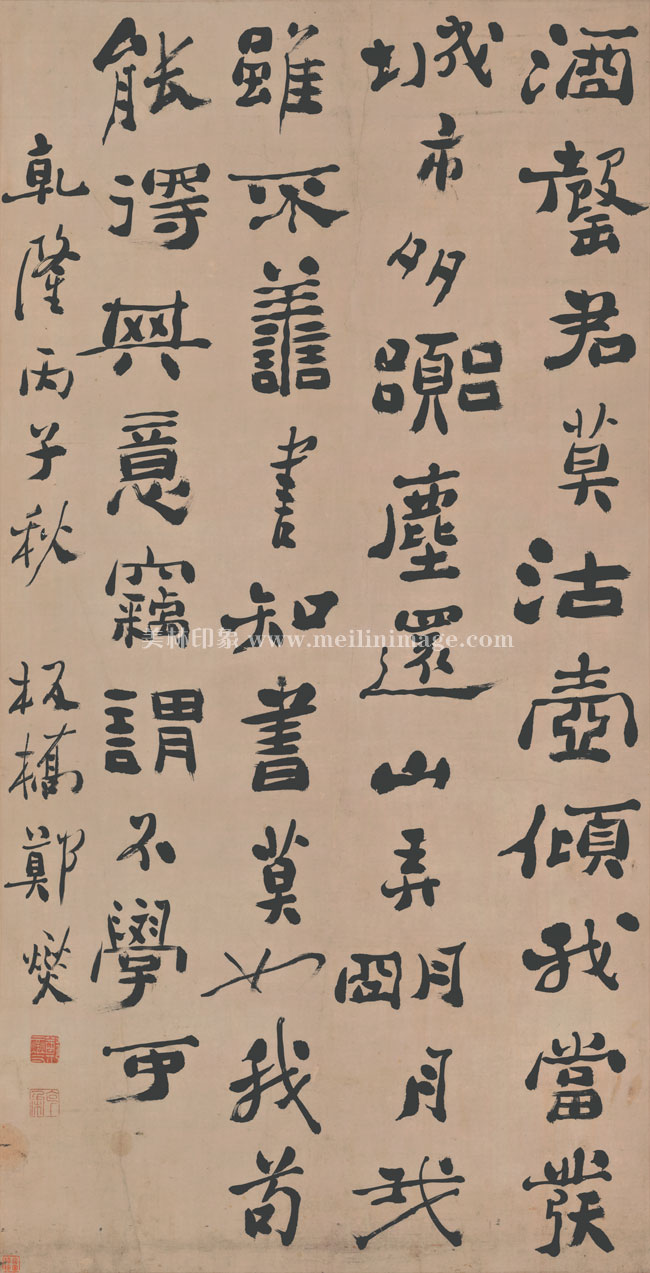 酒罄君莫沽壺傾我當發
城市多嚻塵還山弄朙月我
雖不譱書知書莫如我苟
能得其意竊謂不學可
乾隆丙子秋 板橋鄭燮
美林印象 www.meilinimage.com